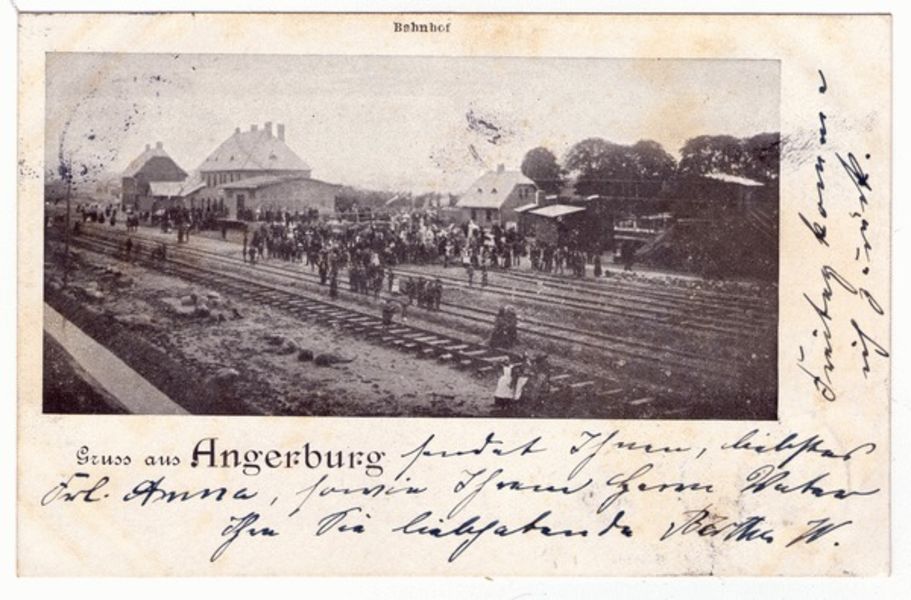 Bahnhof
Gruss aus Angerburg sendet Ihnen, liebstes
Frl. Anna, sowie Ihrem Herrn Vater
Ihre Sie liebhabende W.
Freitag komme
ich zurück.